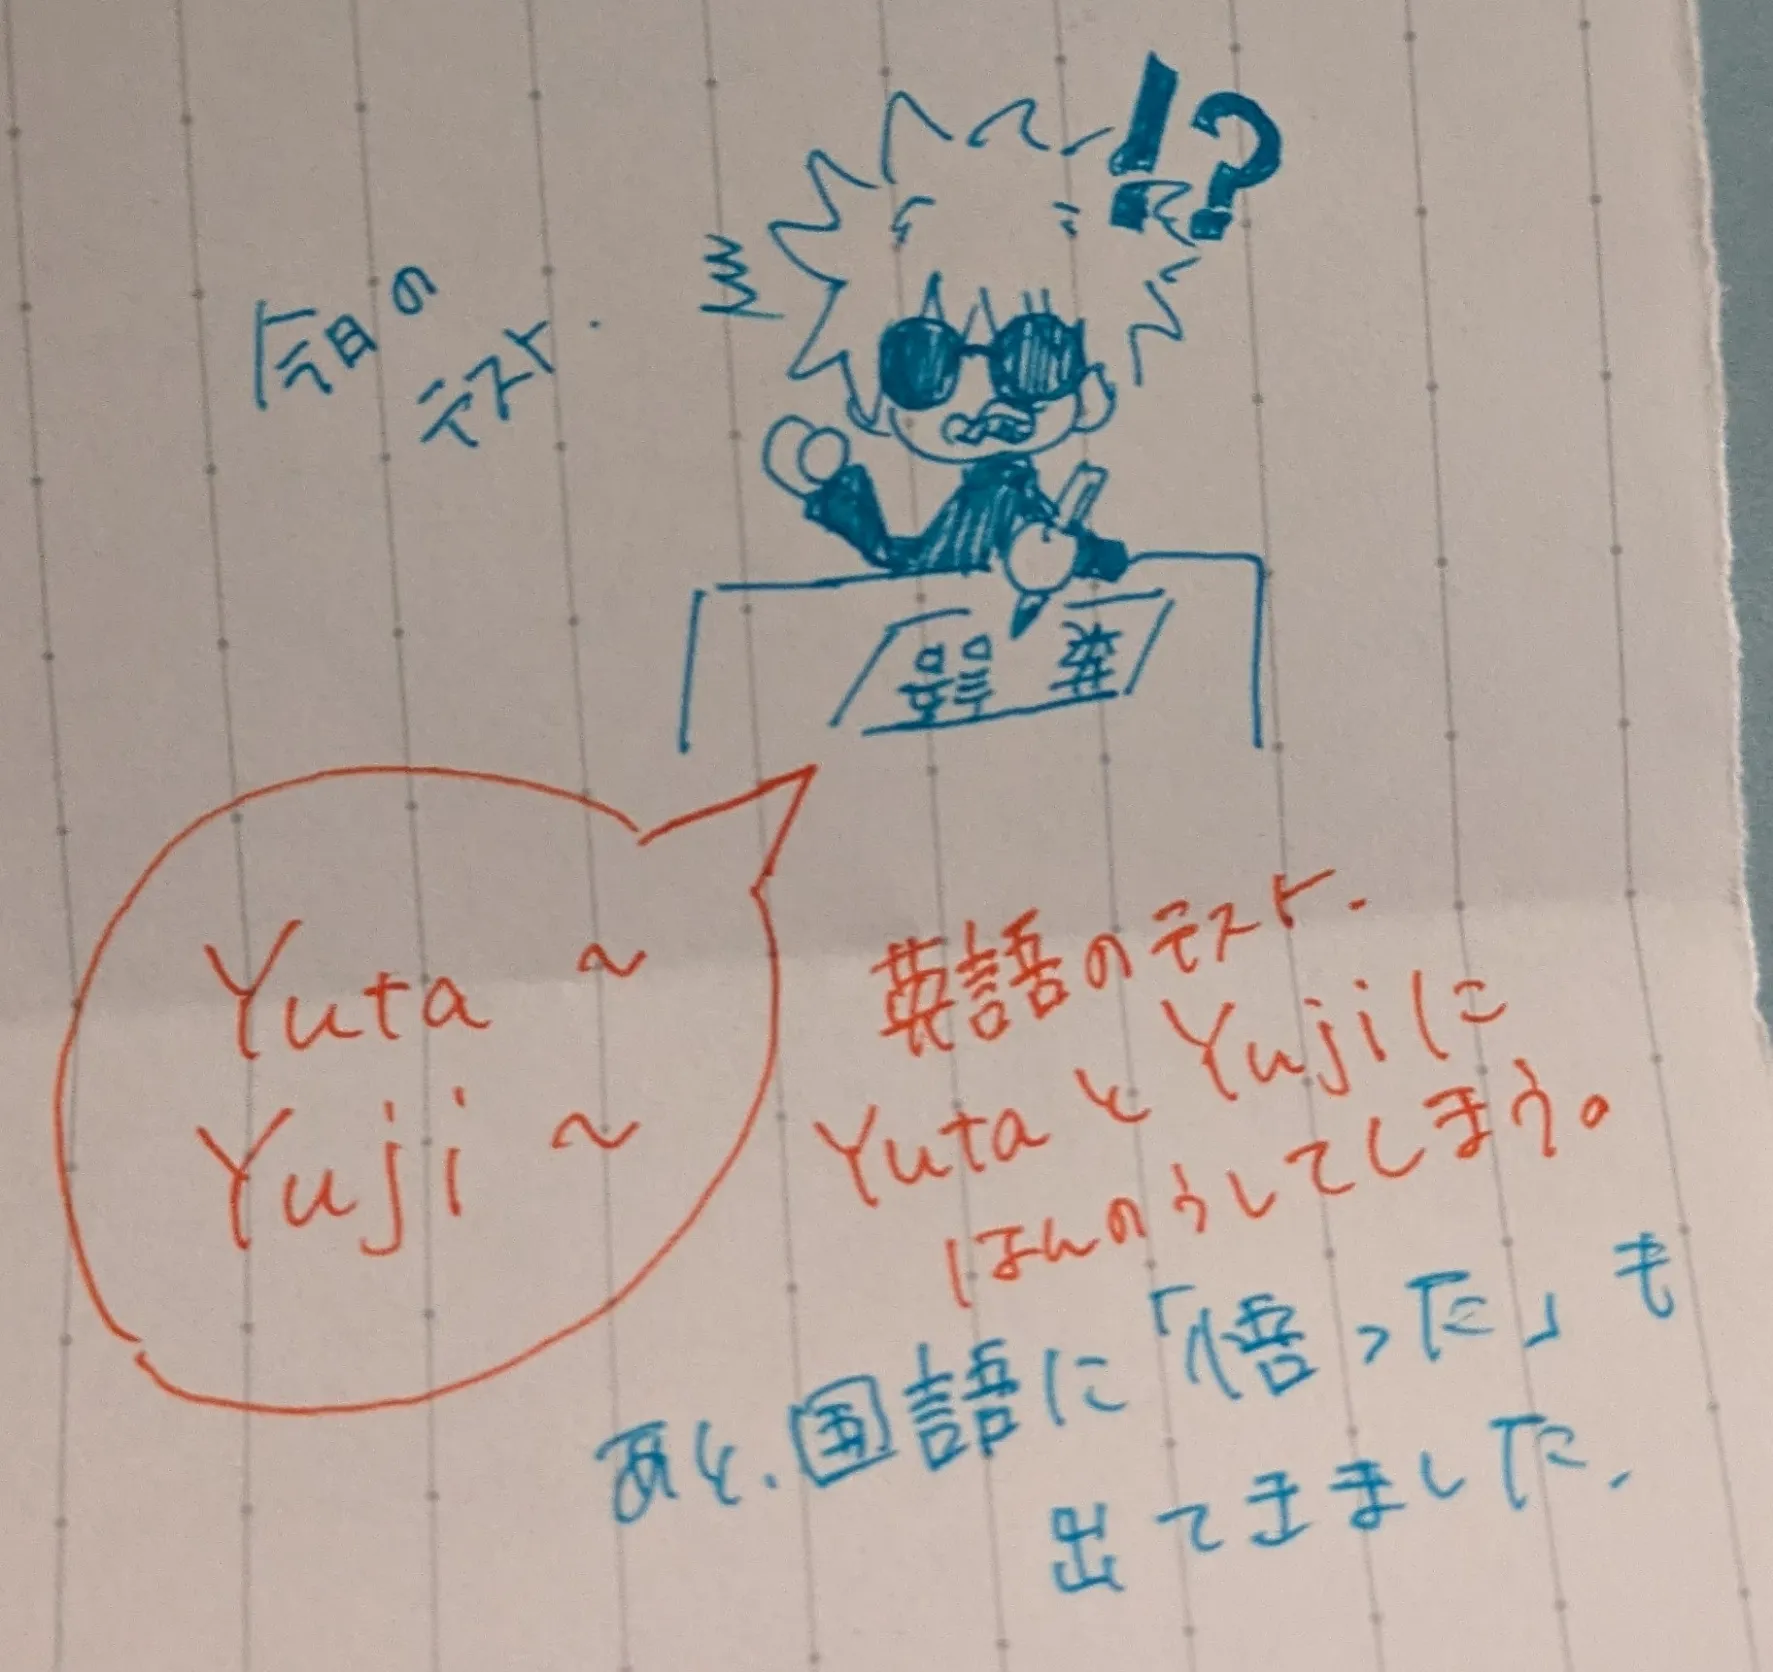 今日の
テスト.
!?
Yuta ~
Yuji ~
英語のテスト.
YutaとYujiに
はんのうしてしまう。
あと、国語に「悟った」も
出てきました.